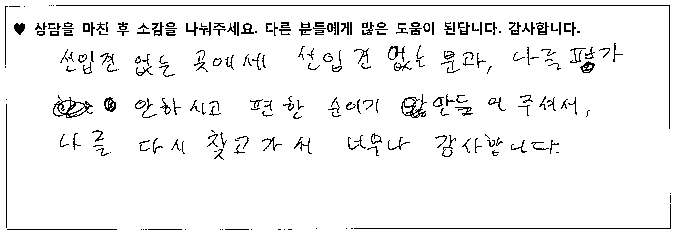 ♥ 상담을 마친 후 소감을 나눠주세요. 다른 분들에게 많은 도움이 된답니다. 감사합니다.
선입견 없는 곳에세 선입견 없는 문과, 나를 평가
안하시고 편한 분위기 만들어주셔서,
나를 다시 찾고가서 너무나 감사합니다.